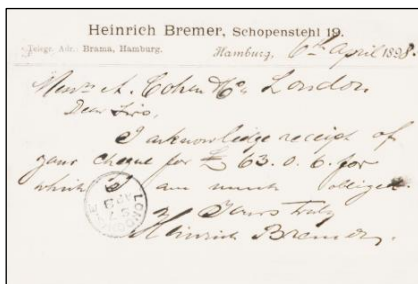 Heinrich Bremer, Schopenstehl 19.
Telegr. Adr.: Brama, Hamburg.
Hamburg, 6th April 1898.
Messrs A. Cohen & Co London
Dear Sirs,
I acknowledge receipt of
your cheque for £ 63.0.6. for
which I am much obliged
Yours truly
Heinrich Bremer.
LONDON